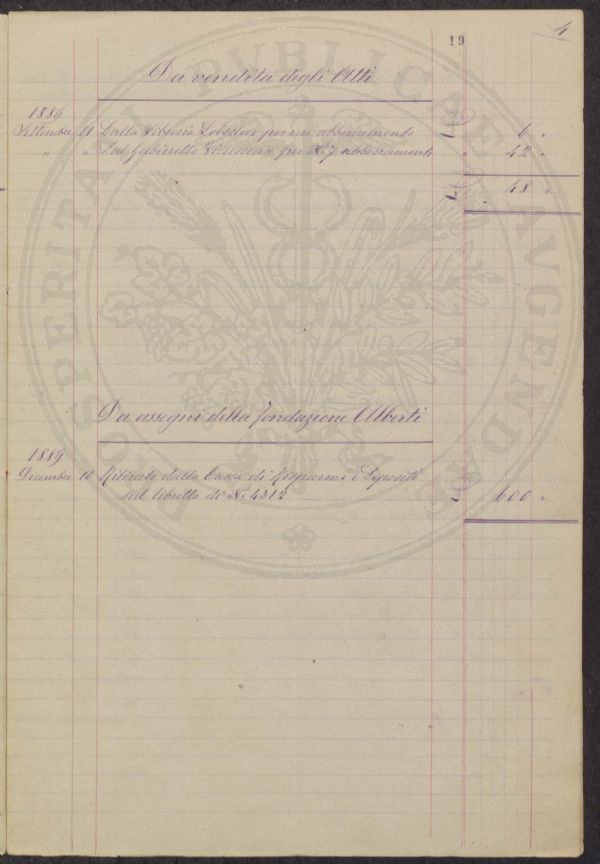 19
4
Da vendita degli Atti
1889
Settembre 11 Dalla Libreria per un abbonamento 6 "
" " Dal Gabinetto per N.i 7 abbonamenti 42 "
48 "
Da assegni della fondazione Alberti
1889
Dicembre 10 Ritirate dalla Cassa di Risparmi e Depositi
sul libretto di N.o 4312 600 "
PROSPERITATI PVBLICAE AVGENDAE